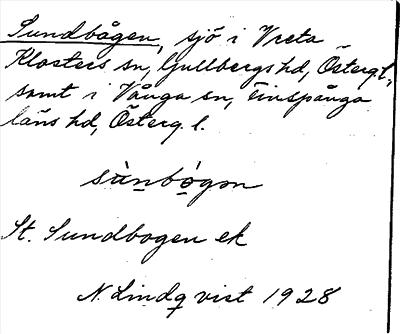 Sundbågen, sjö i Vreta
Klosters sn, Gullbergs hd, Österg. l.,
samt i Vånga sn, Finspånga
läns hd, Österg. l.
sùnbògon
St. Sundbogen ek
N. Lindqvist 1928